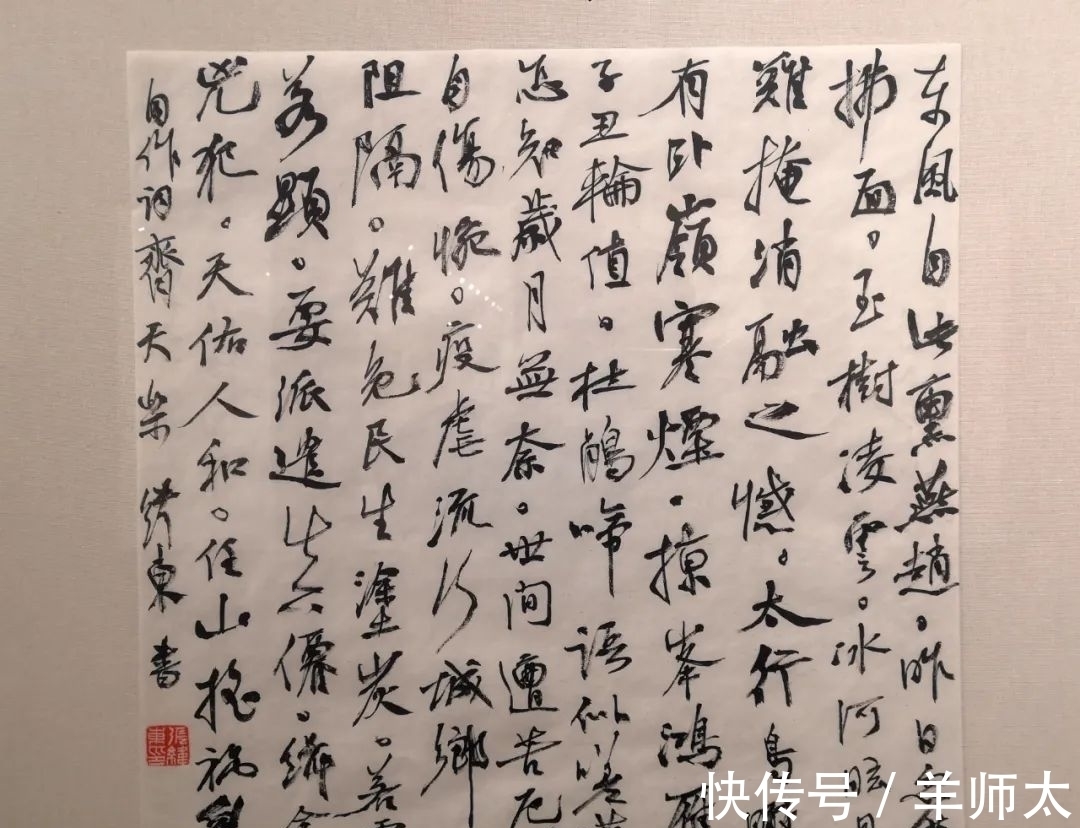 东風自此熏燕趙。昨日
拂面。玉樹凌雲。冰河
難掩消融之憾。太行
有卧嶺寒煙。掠峯鴻雁
子丑輪值。杜鵑啼語似
怎知歲月無奈。世間遭苦厄
自傷惋。疫虐流行城鄉
阻隔。難免民生塗炭。若
顯。派遣
兇犯。天佑人和。任山搖
自作词齊天樂 東書
快传号 / 羊师太